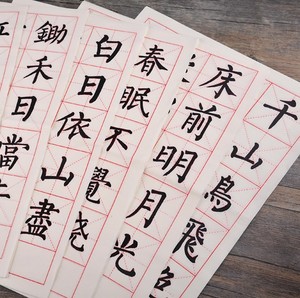 千山鳥飛
床前明月光
春眠不覺
白日依山盡
鋤禾日當